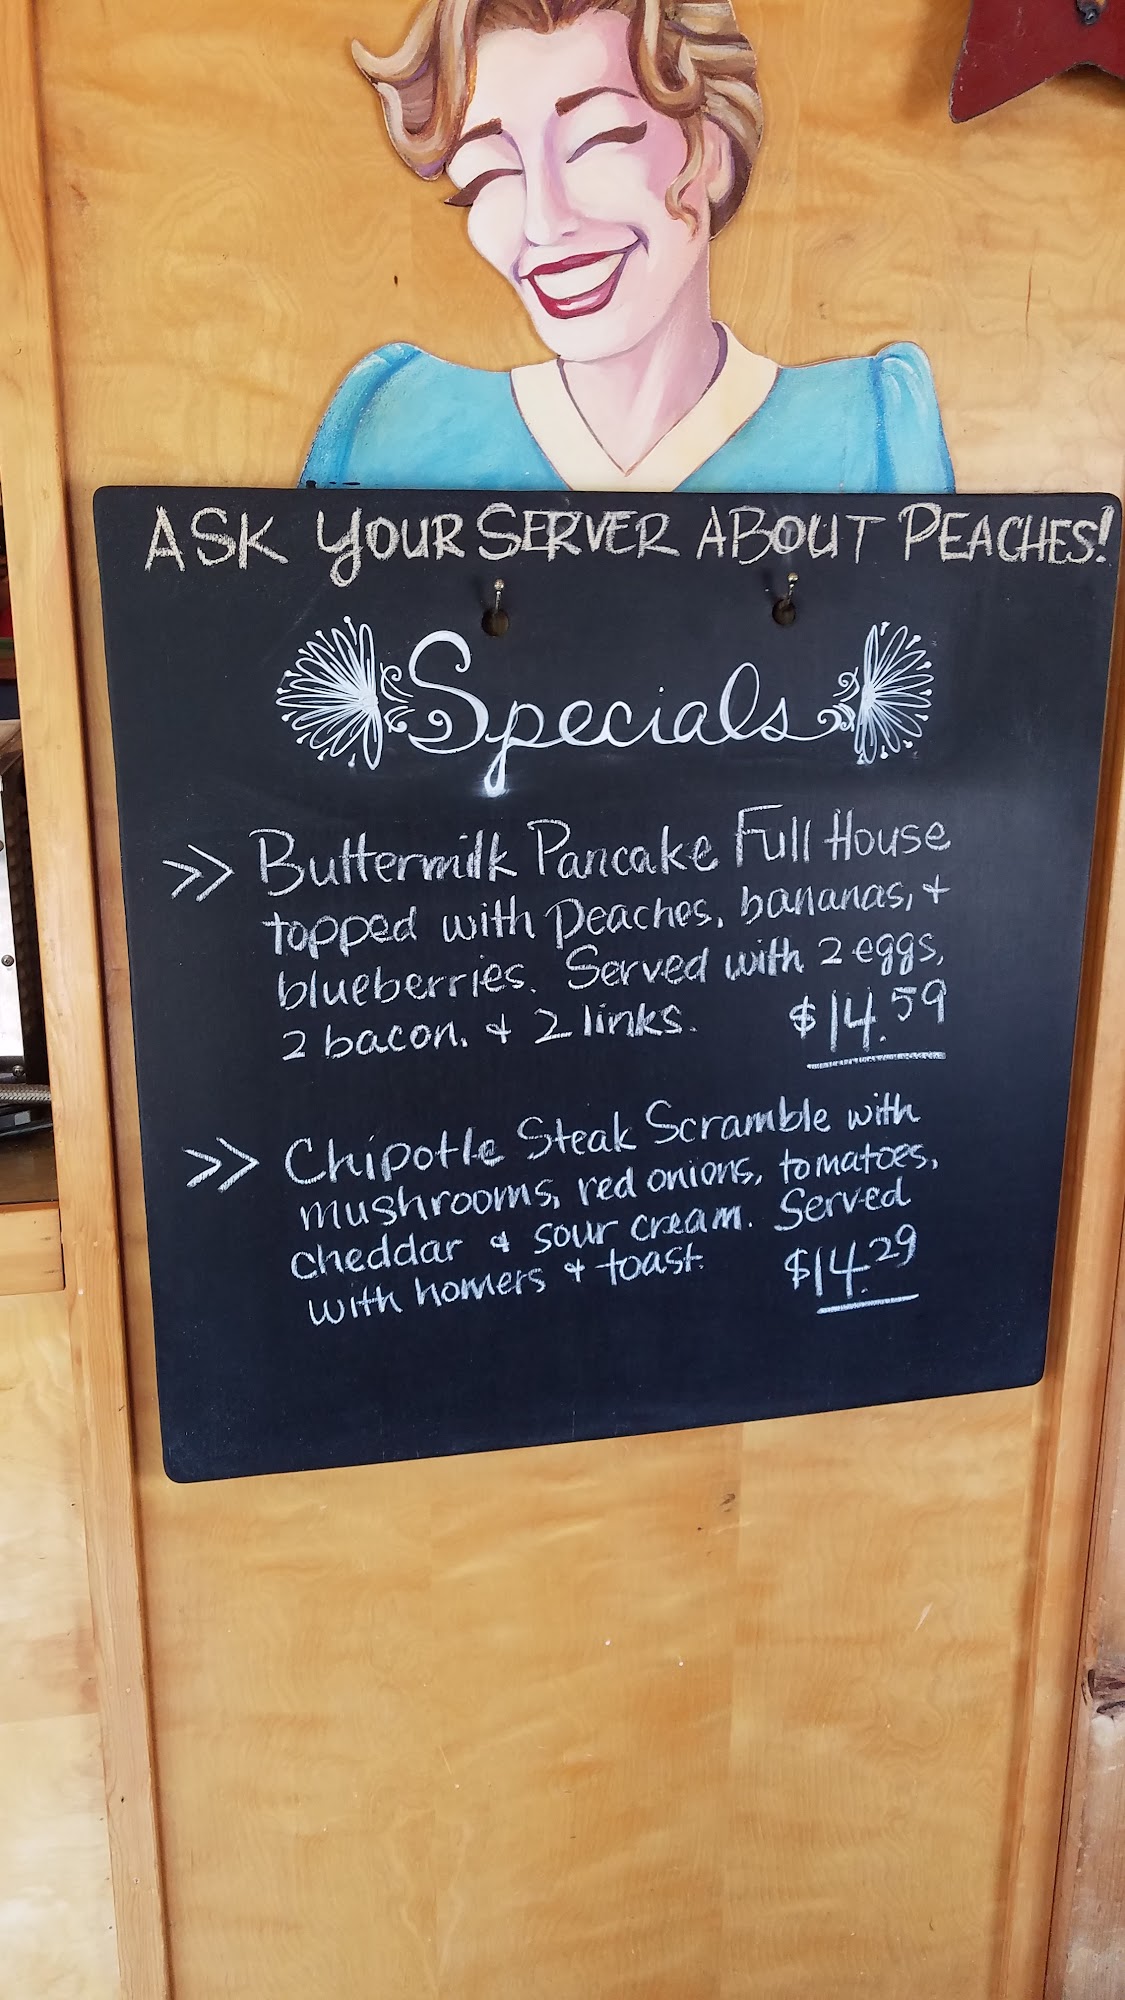 ASK YOUR SERVER ABOUT PEACHES!
Specials
>> Buttermilk Pancake Full House
topped with peaches, bananas, +
blueberries. Served with 2 eggs,
2 bacon, + 2 links. $14.59
>> Chipotle Steak Scramble with
mushrooms, red onions, tomatoes,
cheddar + sour cream. Served
with homers + toast. $14.29